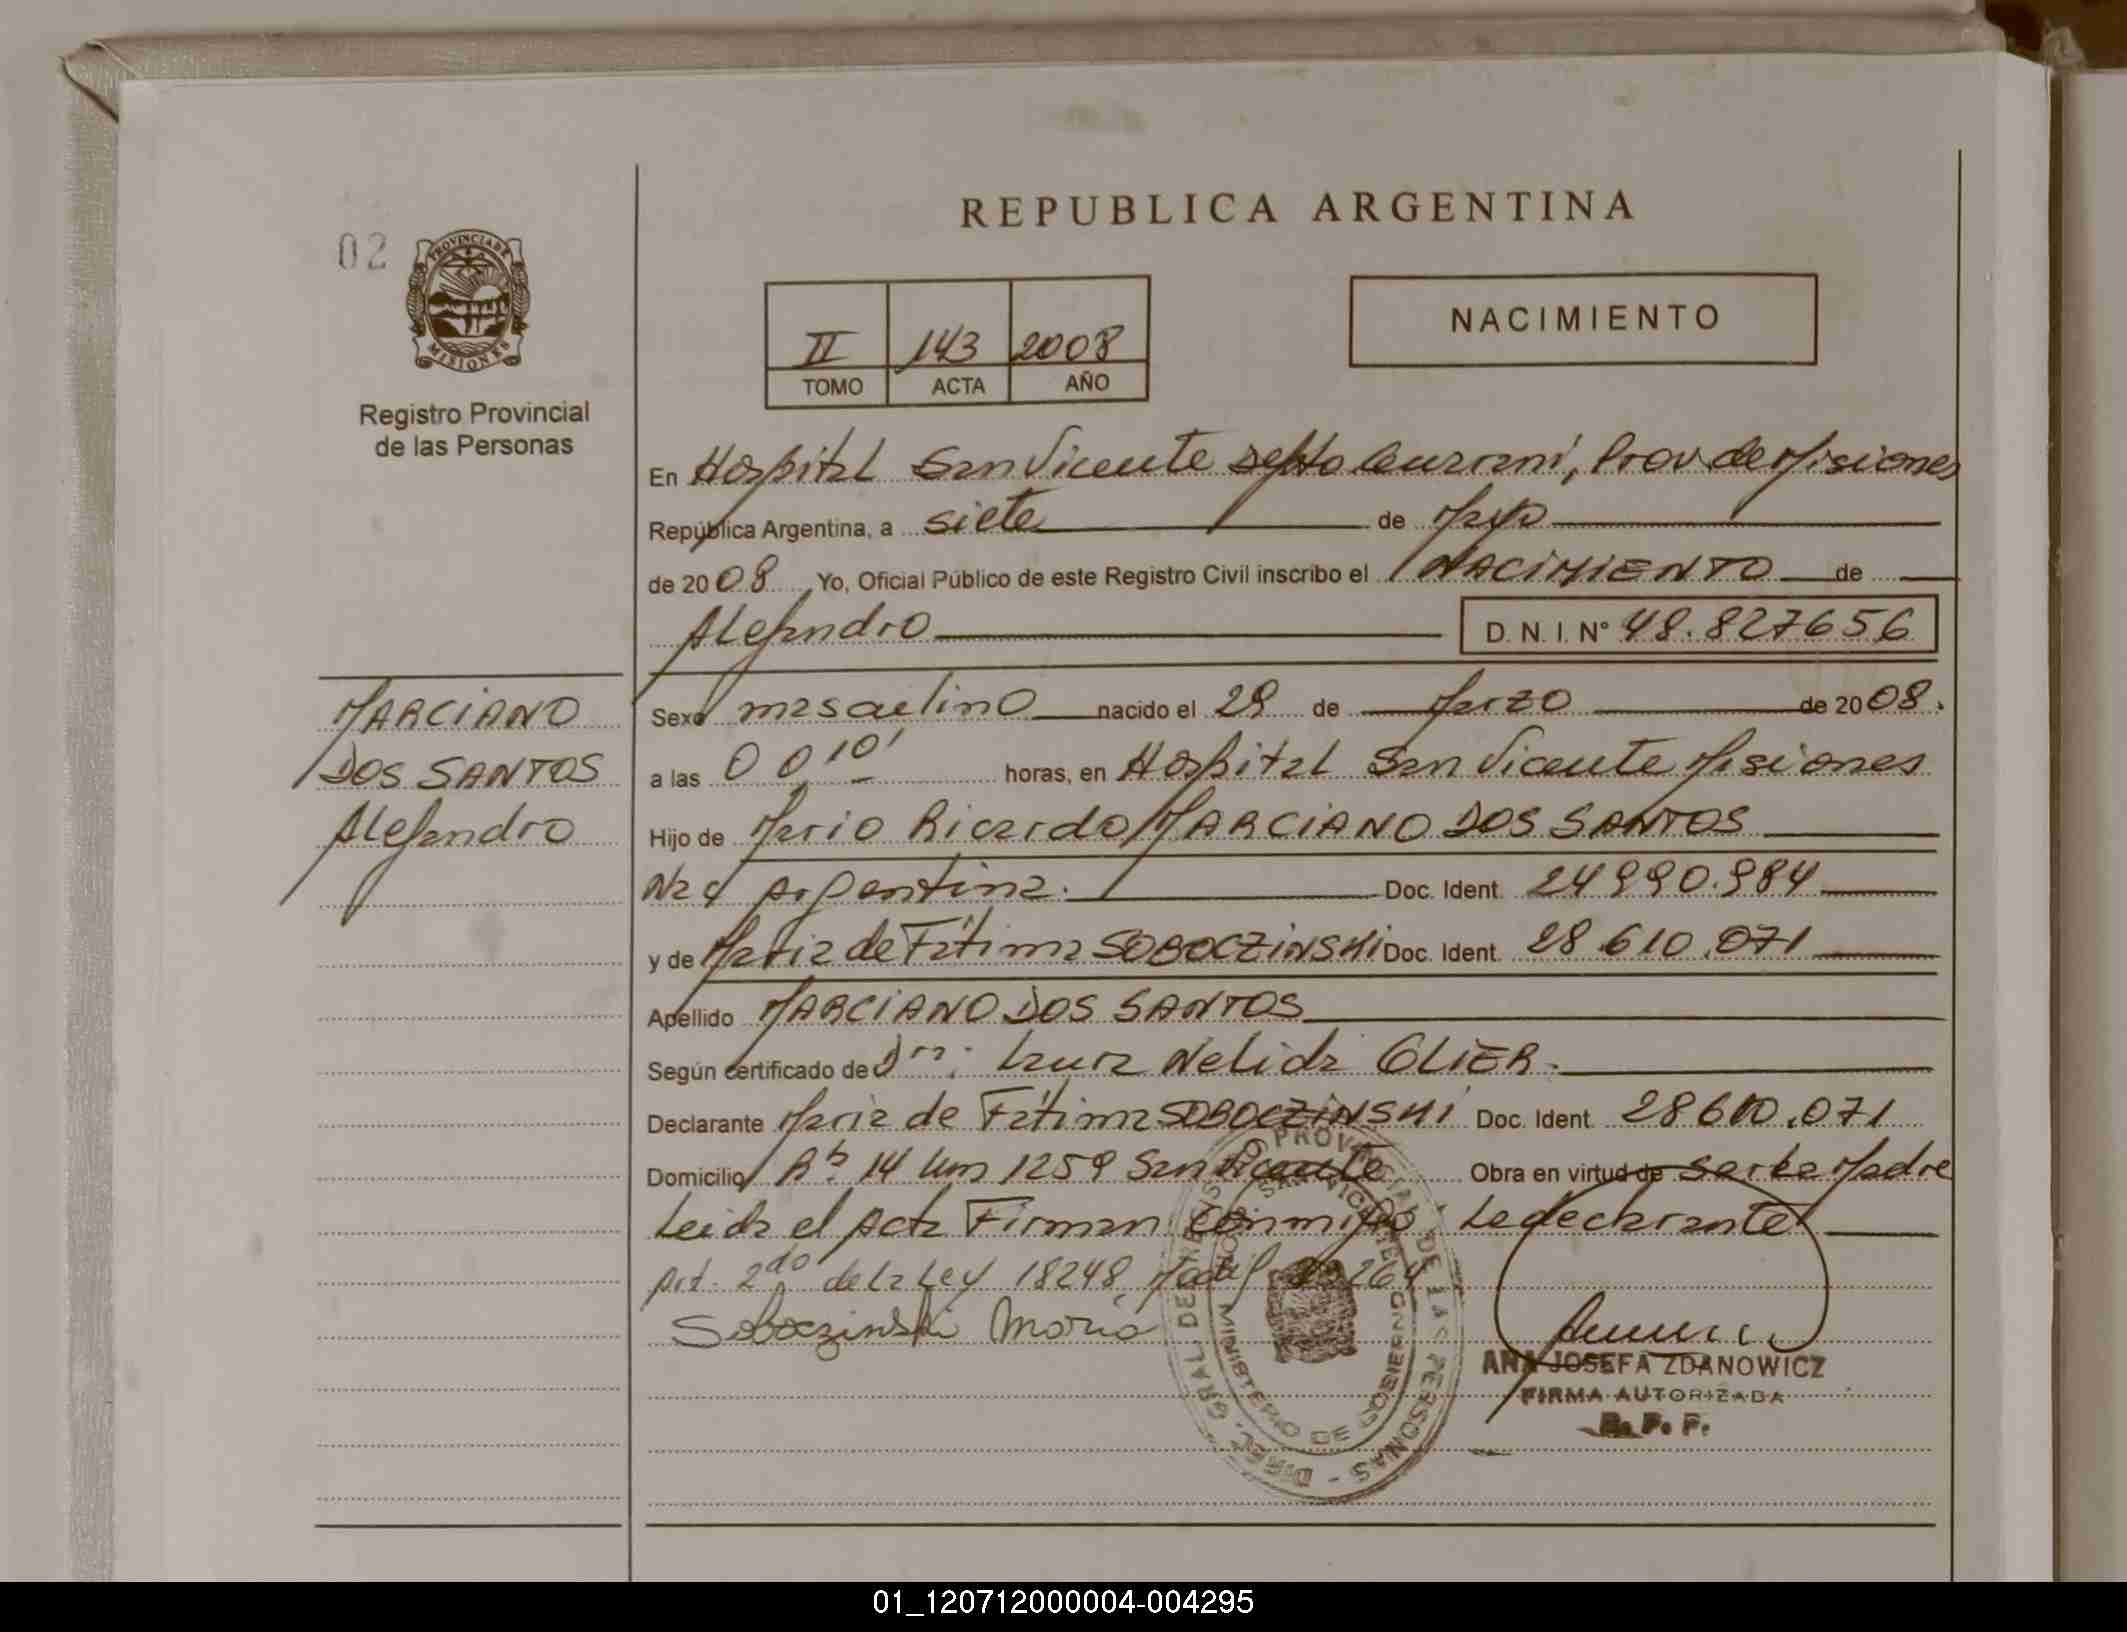 REPUBLICA ARGENTINA
02
PROVINCIA DE
MISIONES
Registro Provincial
de las Personas
II 143 2008
TOMO ACTA AÑO
NACIMIENTO
En Hospital San Vicente depto Guarani, Prov de Misiones
República Argentina, a siete de Mayo
de 2008 Yo, Oficial Público de este Registro Civil inscribo el NACIMIENTO de
Alejandro D. N. I. N° 48.827656
MARCIANO
DOS SANTOS
Alejandro
Sexo masculino nacido el 29 de Marzo de 2008.
a las 00 10' horas, en Hospital San Vicente Misiones
Hijo de Mario Ricardo MARCIANO DOS SANTOS
Argentina. Doc. Ident. 24990.984
y de Maria de Fátima SOBOCZINSKI Doc. Ident. 28 610.071
Apellido MARCIANO DOS SANTOS
Según certificado de Dra: Laura Nelida OLIER.
Declarante Maria de Fátima SOBOCZINSKI Doc. Ident. 28610.071
Domicilio 14 km 1259 San Vicente Obra en virtud de ser la Madre
Leida el Acta Firman conmigo La declarante
Art. 2do de la Ley 18248 264
Soboczinski Maria
DIREC. GRAL. DE REGISTRO PROVINCIAL DE LAS PERSONAS
SAN VICENTE
MINISTERIO DE GOBIERNO
ANA JOSEFA ZDANOWICZ
FIRMA AUTORIZADA
R. P. P.
01_120712000004-004295